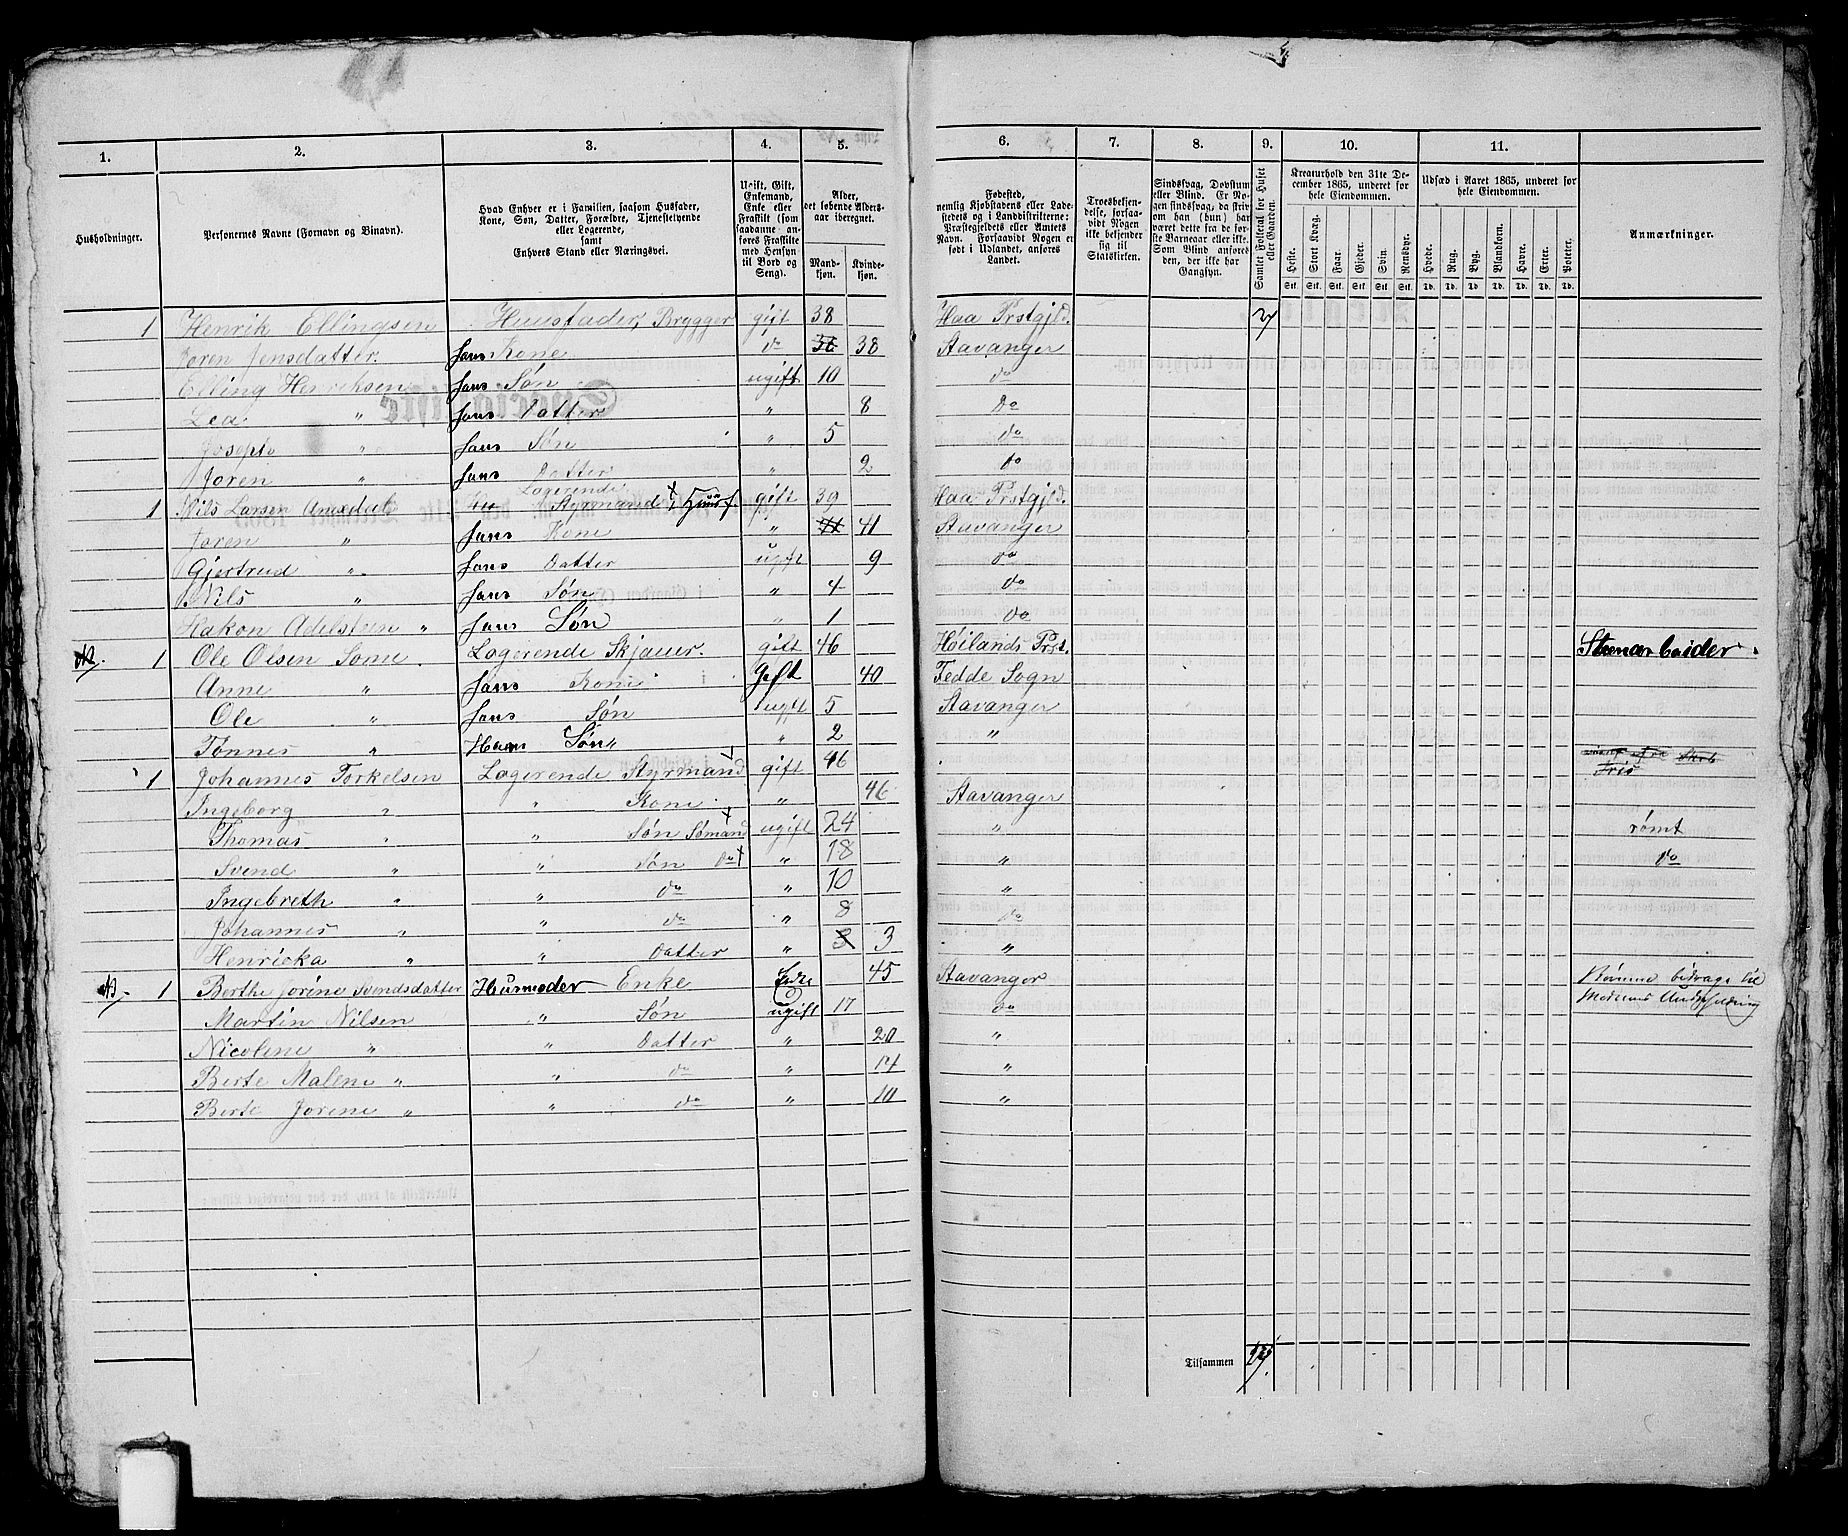 1. 2. 3. 4. 5. 6. 7. 8. 9. 10. 11.
Husholdninger.
Personernes Navne (Fornavn og Binavn).
Hvad Enhver er i Familien, saasom Husfader,
Kone, Søn, Datter, Forældre, Tjenestetyende
eller Logerende,
samt
Enhvers Stand eller Næringsvei.
Ugift, Gift,
Enkemand,
Enke eller
Fraskilt (som
saadanne an-
føres Fraskilte
med Hensyn
til Bord og
Seng).
Alder,
det løbende Alders-
aar iberegnet.
Mand-
kjøn.
Kvinde-
kjøn.
Fødested,
nemlig Kjøbstadens eller Lade-
stedets og i Landdistrikterne:
Præstegjeldets eller Amtets
Navn. Forsaavidt Nogen er
født i Udlandet, anføres
Landet.
Troesbekjen-
delse, forsaa-
vidt Nogen
ikke bekjender
sig til
Statskirken.
Sindssvag, Døvstum
eller Blind. Er No-
gen sindssvag, da skriv
om han (hun) har
været dette fra de før-
ste Barneaar eller ikke.
Som Blind anføres
den, der ikke har
Gangsyn.
Samlet Folketal for Huset
eller Gaarden.
Kreaturhold den 31te De-
cember 1865, underet for
hele Eiendommen.
Heste. Stort Kvæg. Faar. Gjeder. Svin. Rensdyr.
Stk. Stk. Stk. Stk. Stk. Stk.
Udsæd i Aaret 1865, underet for
hele Eiendommen.
Hvede. Rug. Byg. Blandkorn. Havre. Erter. Poteter.
Td. Td. Td. Td. Td. Td. Td.
Anmærkninger.
1 Henrik Ellingsen Huusfader, Brygger gift 38 Haa Prstgjld.
Joren Jensdatter hans Kone do 38 Stavanger
Elling Henriksen hans Søn ugift 10 do
Lea " hans Datter " 8 do
Joseph " hans Søn " 5 do
Joren " hans Datter " 2 do
Logerende
1 Nils Larsen Styrmand Huusf. gift 39 Haa Prstgjld.
Joren " hans Kone " 41 Stavanger
Gjertrud " hans Datter ugift 9 do
Nils " hans Søn " 4 do
Hakon Adelsteen " hans Søn " 1 do
1 Ole Olsen Some Logerende Skjauer. gift 46 Høilands Prst.
Steenarbeider
Anne " hans Kone Gift 40 Fedde Sogn
Ole " hans Søn ugift 5 Stavanger
Tønnes " Hans Søn " 2 "
1 Johannes Torkelsen Logerende Styrmand gift 46
Ingeborg " " Kone " 46 Stavanger
Thomas " " Søn Sømand ugift 24 " rømt
Svend " " Søn do " 18 " do
Ingebreth " " do " 10 "
Johannes " " do " 8 do
Henricka " " Datter " 3 "
1 Berthe Jorine Svendsdatter Husmoder Enke Enke 45 Stavanger
Martin Nilsen " Søn ugift 17 do
Nicoline " " Datter " 20 "
Berte Malene " " do " 14 "
Berte Jorene " " do " 10 "
Tilsammen